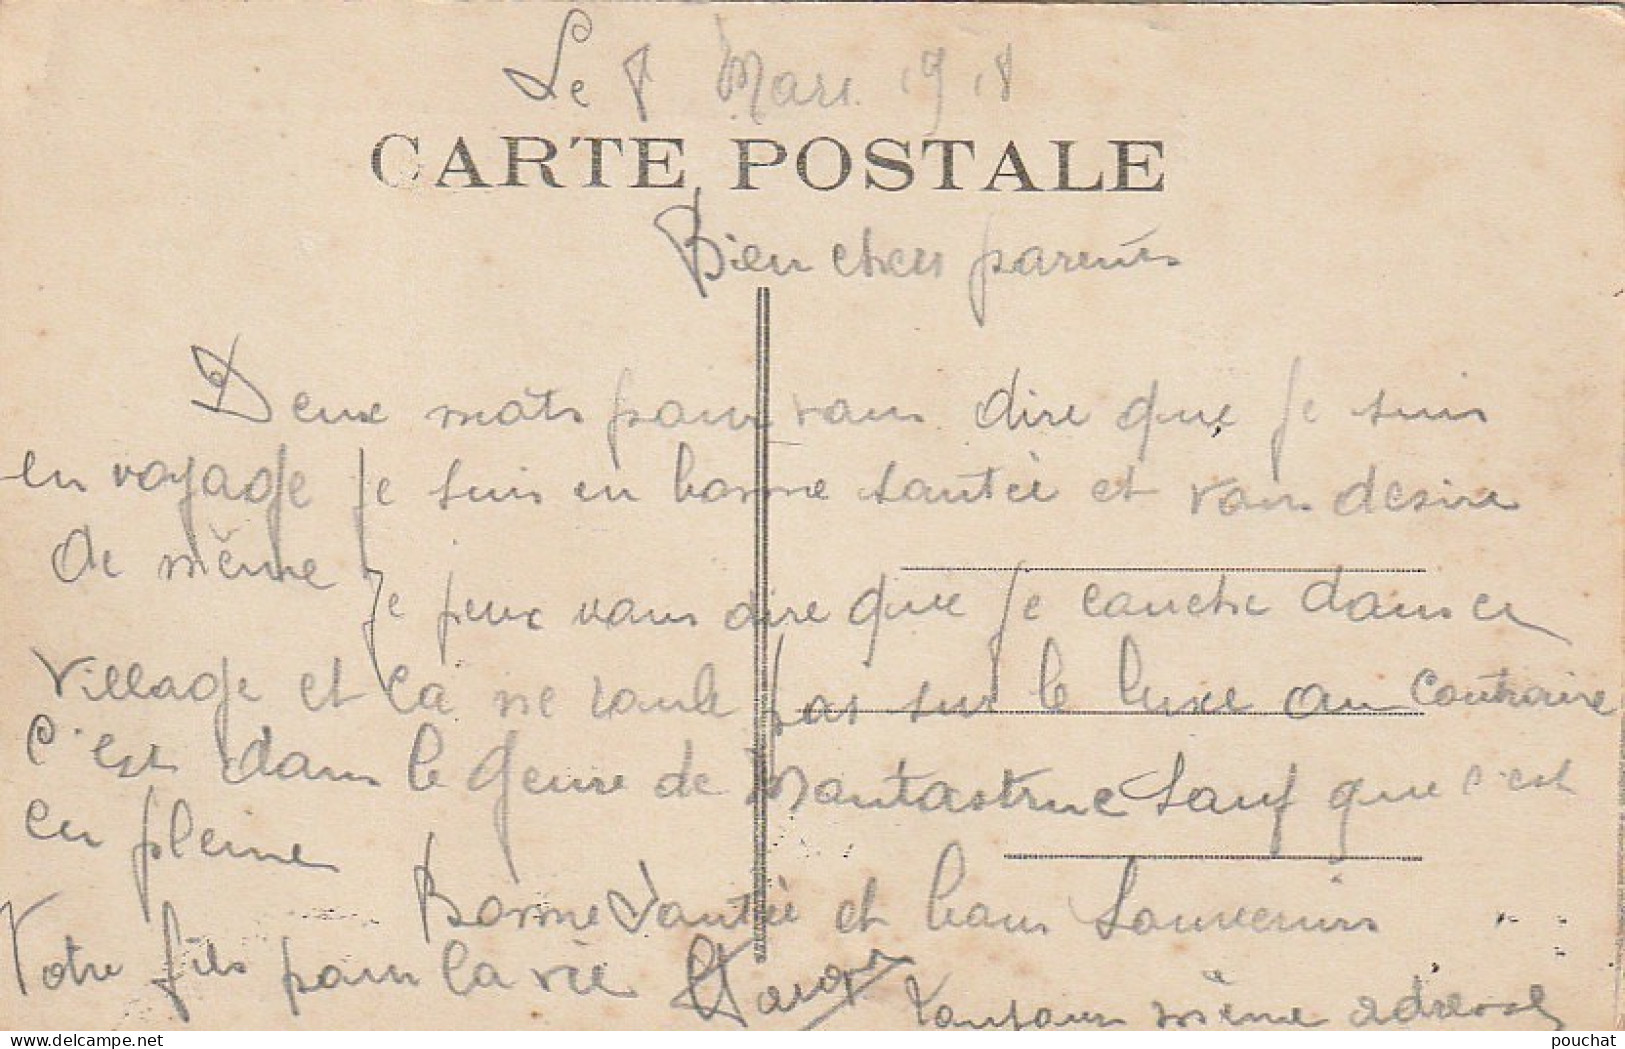 Le 8 Mars 1918
CARTE POSTALE
Bien chers parents
Deux mots pour vous dire que je suis
en voyage je suis en bonne santée et vous desire
de même Je peux vous dire que je couche dans ce
village et ca ne roule pas sur le luxe au contraire
C'est dans le genre de Montastruc Sauf que c'est
en pleine
Bonne Santée et bons Souvenirs
Votre fils pour la vie
Toujours même adresse
pouchat